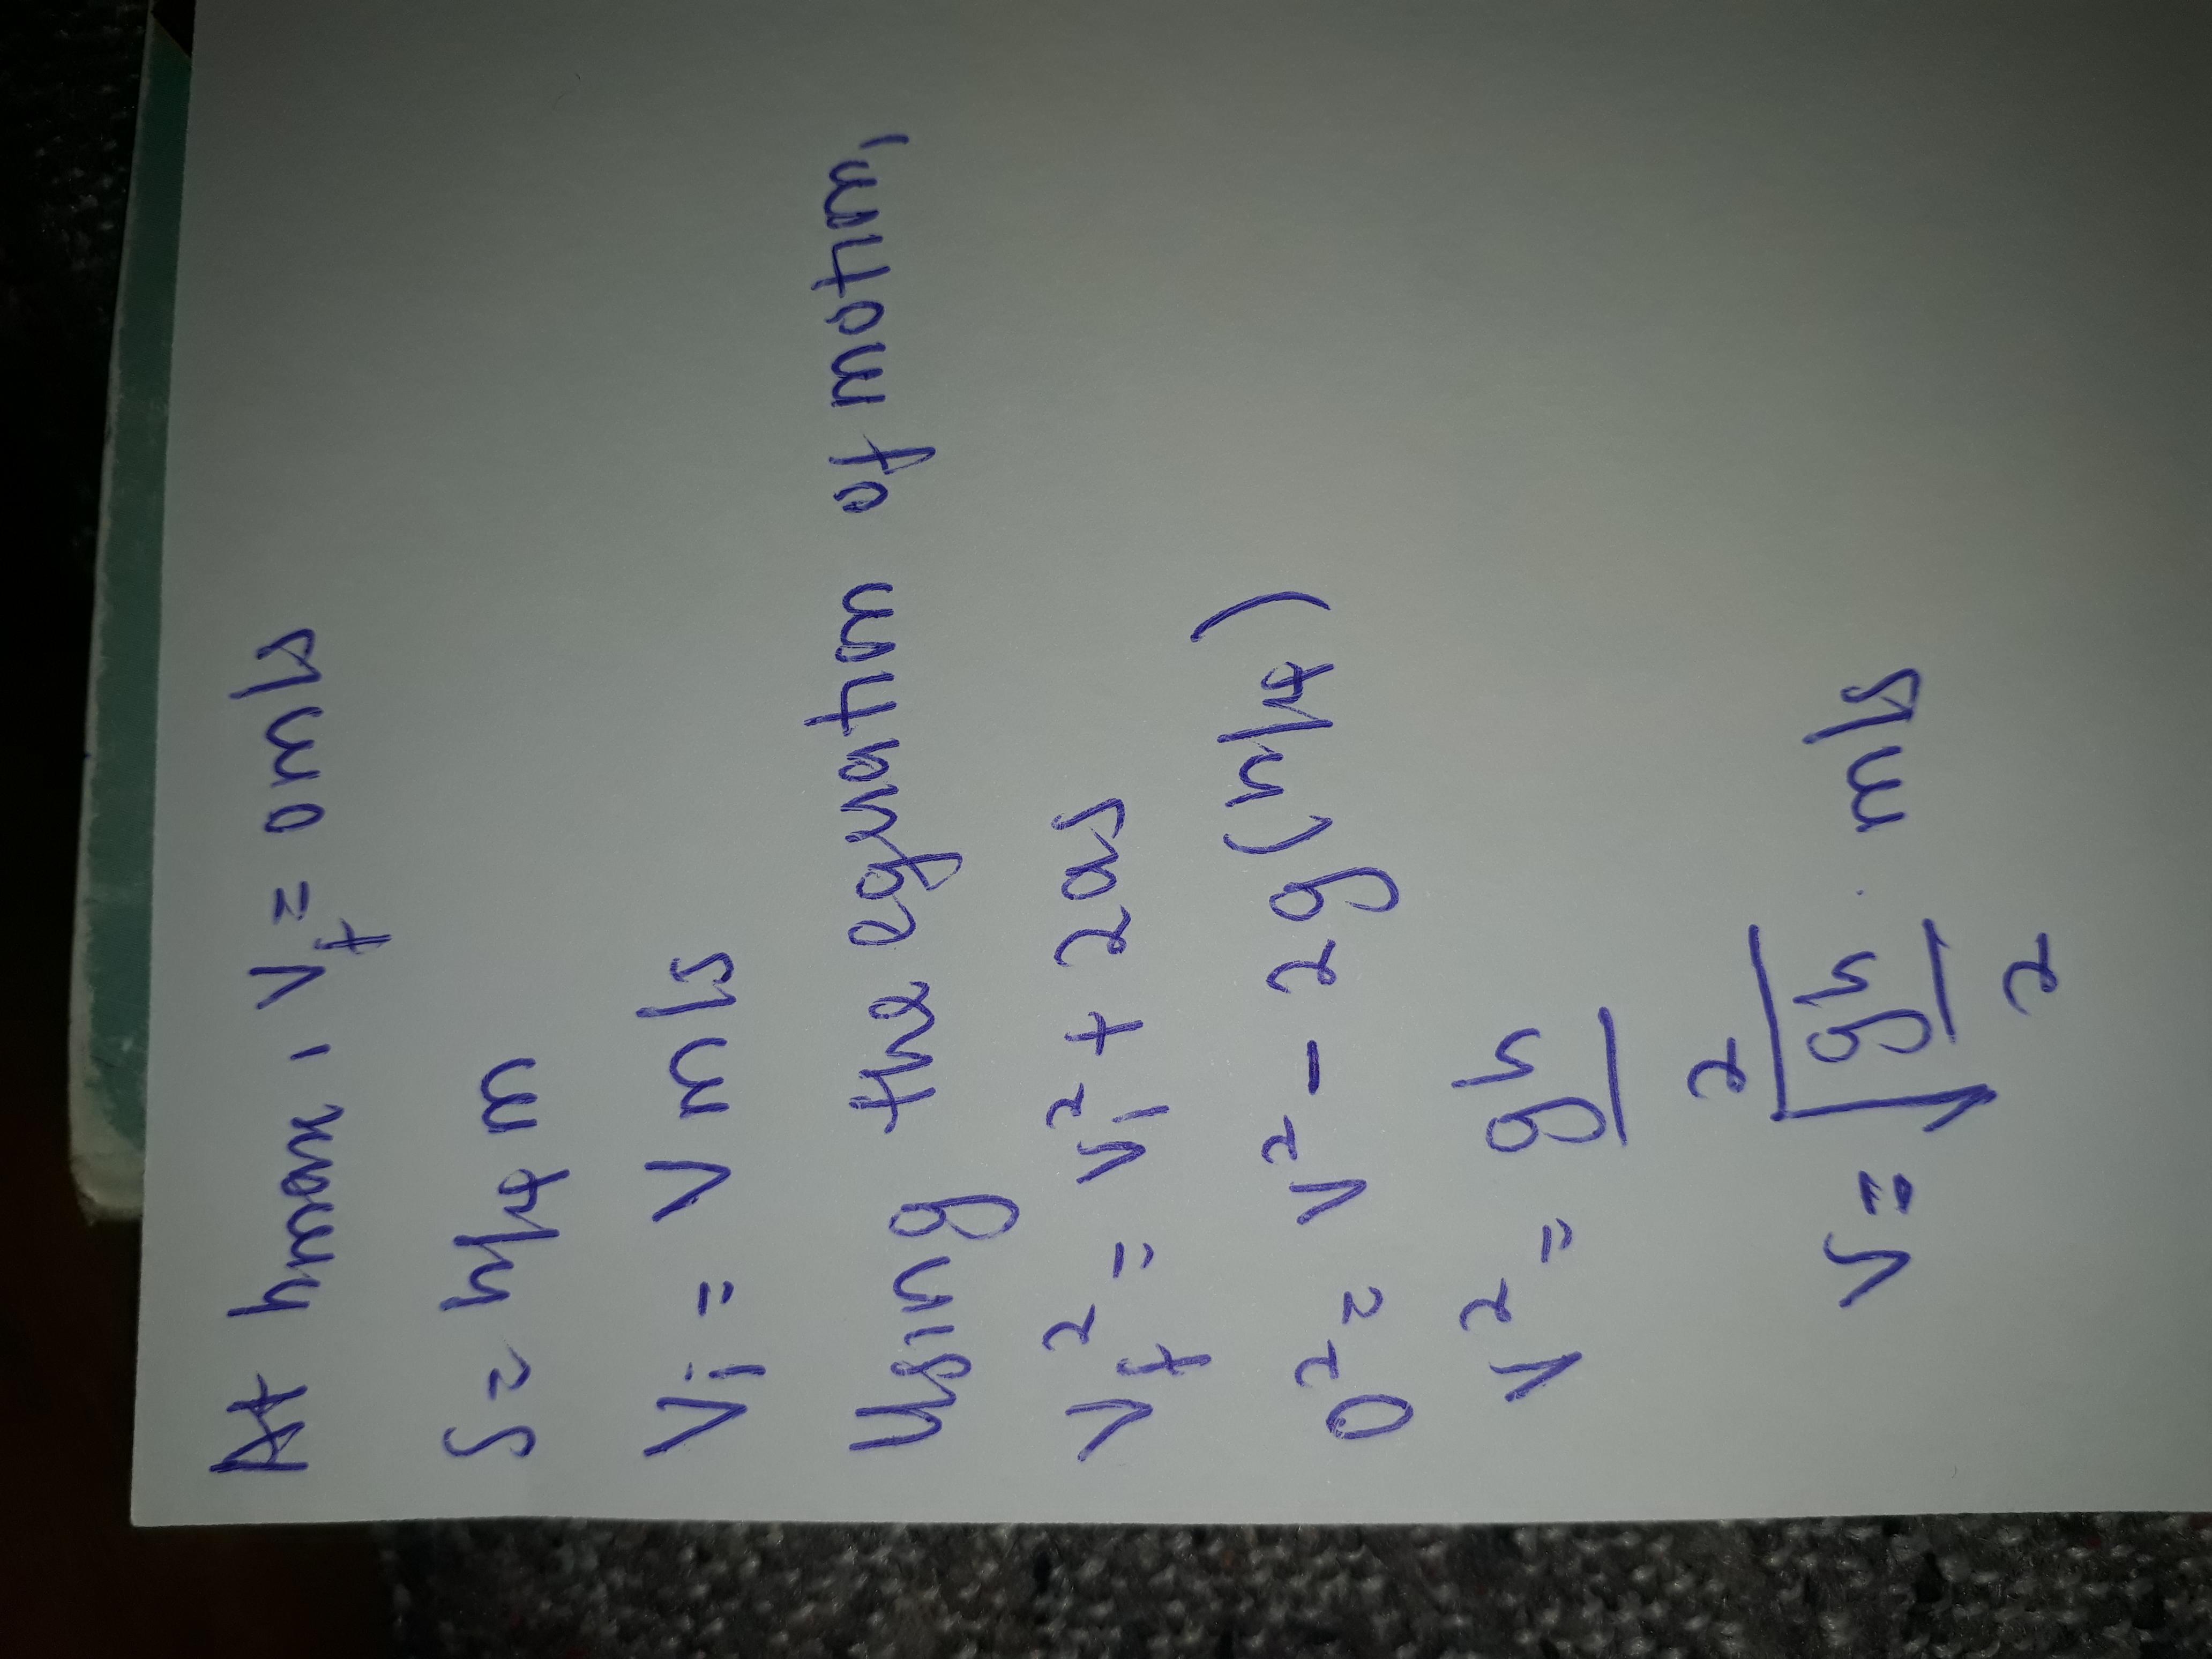 At hmax, Vf = 0 m/s
S = h/4 m
Vi = V m/s
Using the equation of motion,
Vf² = Vi² + 2as
0² = V² - 2g(h/4)
V² = gh/2
V = ²√(gh/2) m/s